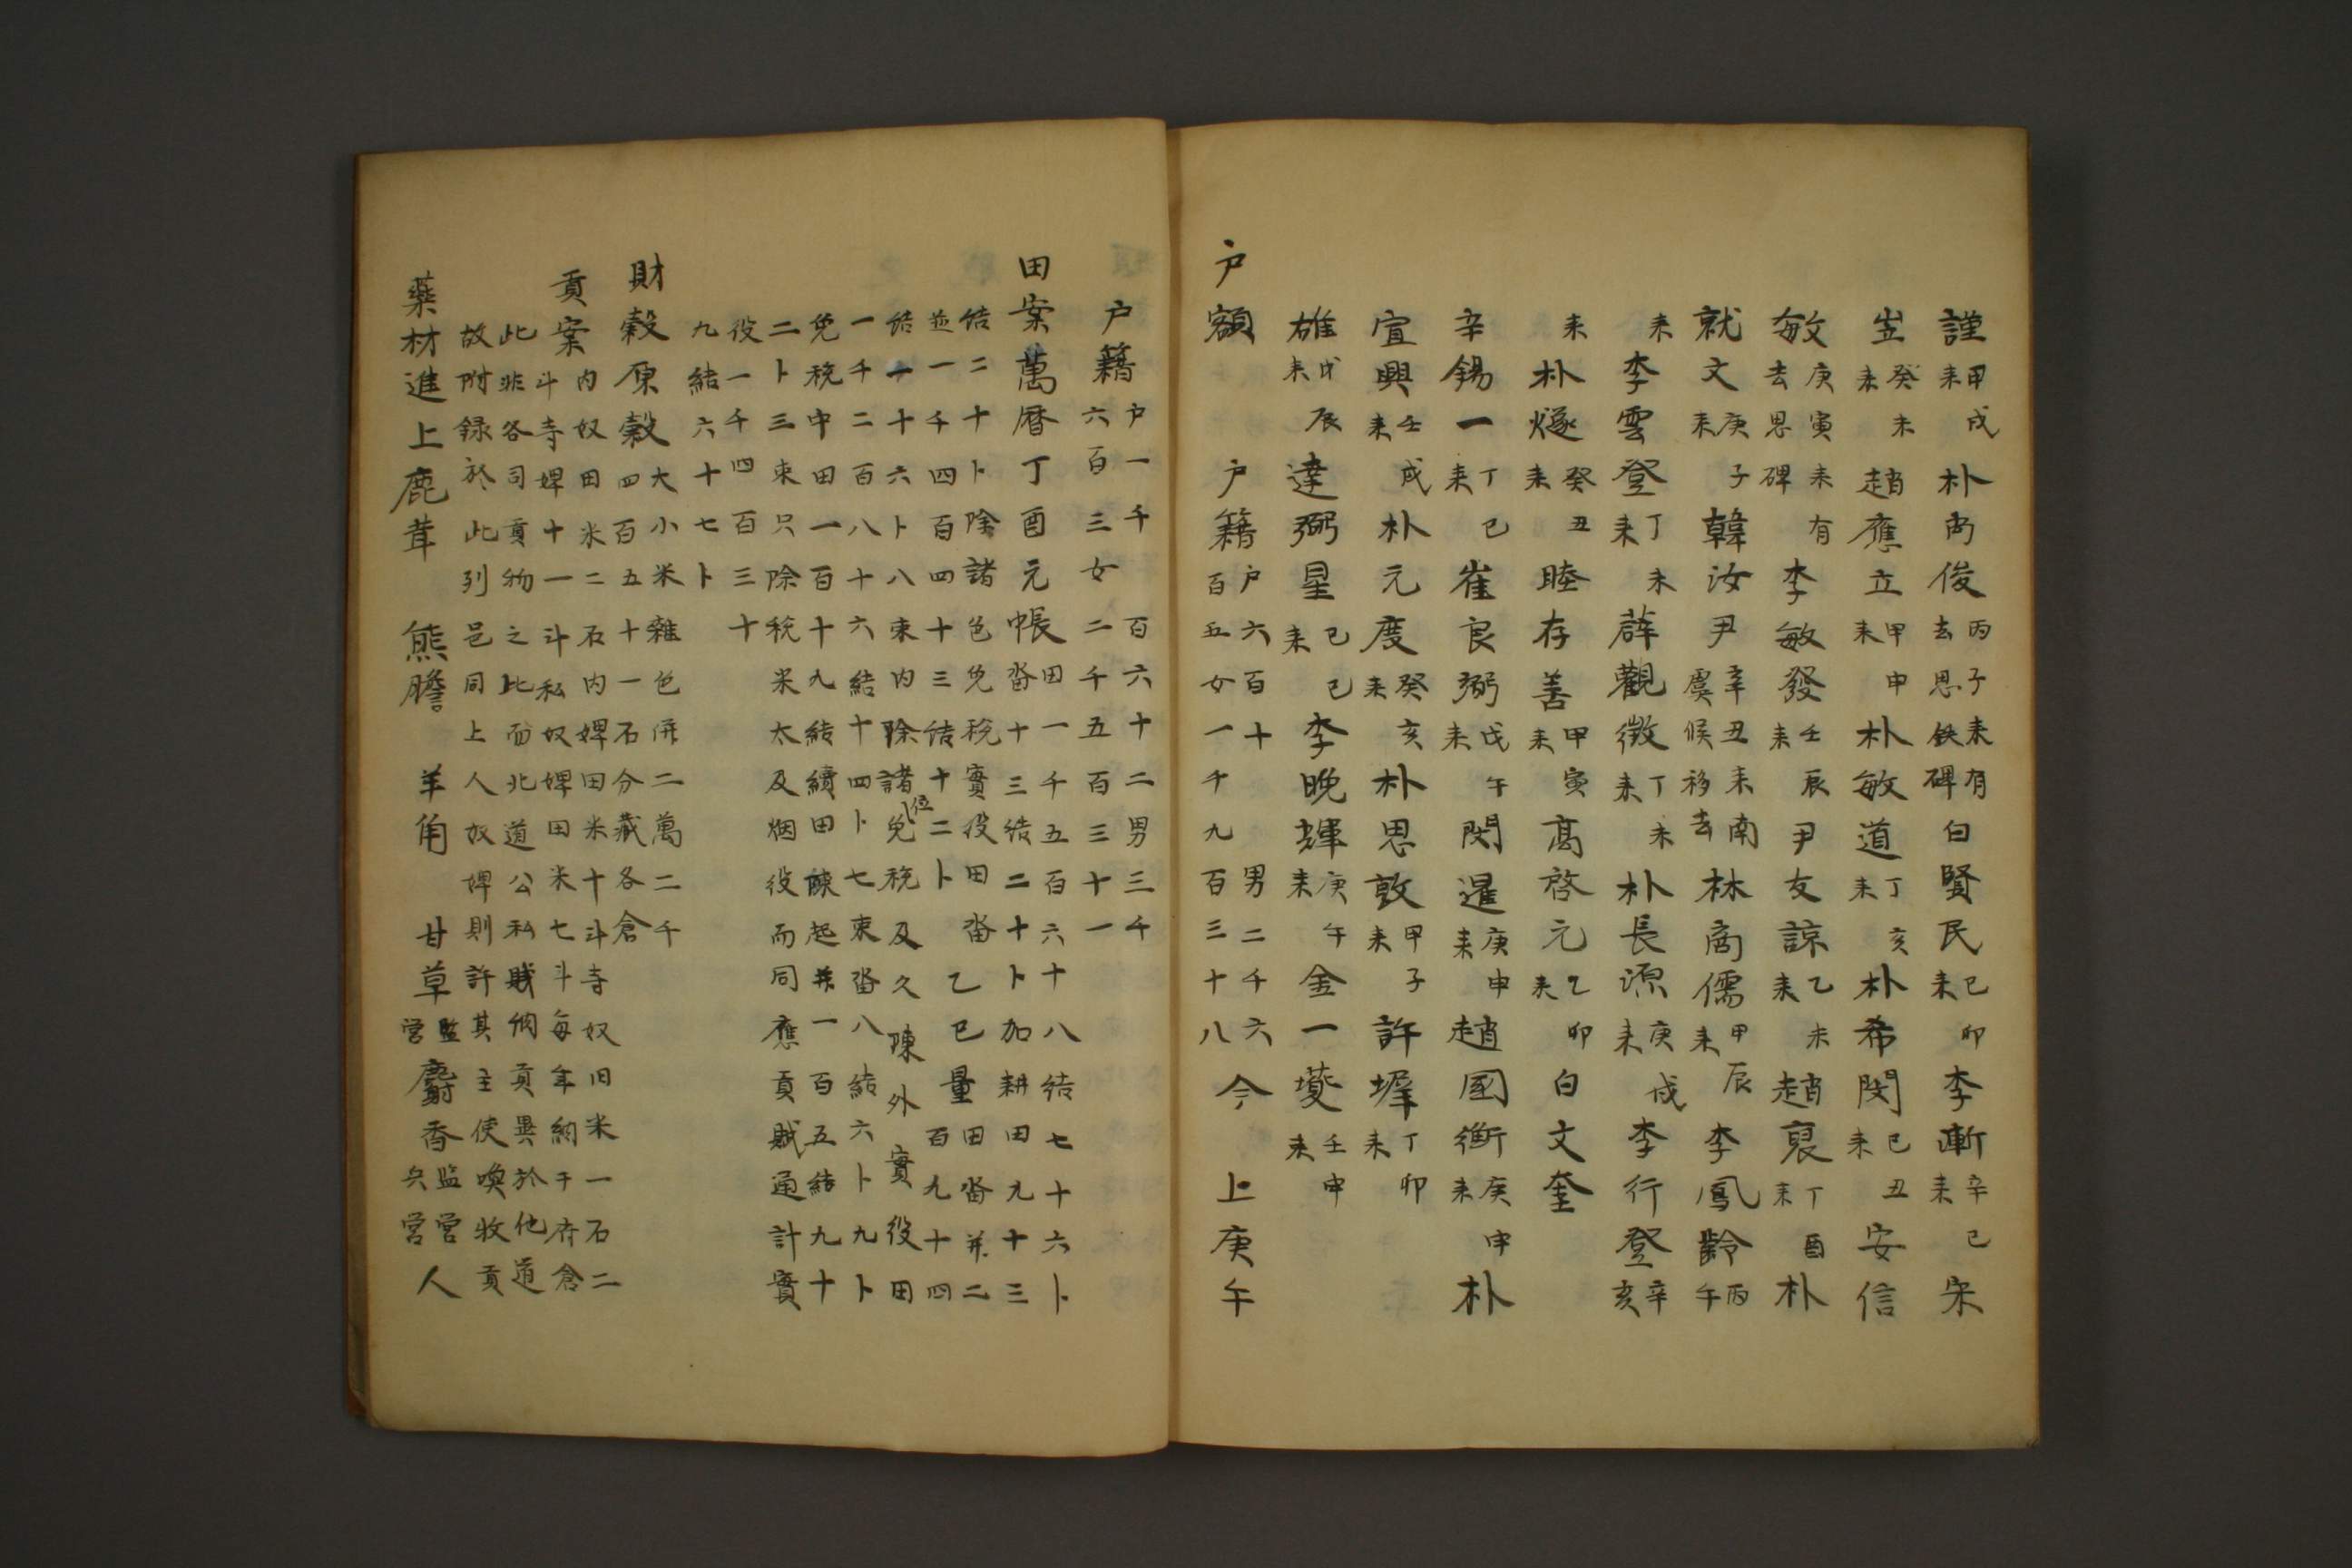 謹甲戌來朴尚俊丙子來有去思鉄碑白賢民己卯來李漸辛巳來宋
岦癸未來趙應立甲申來朴敏道丁亥來朴希閔己丑來安信
敏庚寅來有去思碑李敏發壬辰來尹友諒乙未來趙裒丁酉來朴
就文庚子來韓汝尹辛丑來南虞候移去林商儒甲辰來李鳳齡丙午
來李雲登丁未來薛觀徵丁未來朴長源庚戌來李行登辛亥
來朴燧癸丑來睦存善甲寅來高啓元乙卯來白文奎
辛錫一丁巳來崔良弼戊午來閔暹庚申來趙國衡庚申來朴
宜興壬戌來朴元度癸亥來朴思敦甲子來許墀丁卯來
雄戊辰來達弼星己巳來李晚輝庚午來金一夔壬申來
户額 户籍户六百十男二千六百五女一千九百三十八今上庚午
户籍户一千百六十二男三千六百三女二千五百三十一
田案萬曆丁酉元帳田一千五百六十八結七十六卜畓十三結二十卜加耕田九十三
結二十卜除諸色免稅實役田畓乙巳量田畓并二
並一千四百四十三結十二卜百九十四
結一十六卜八束内除諸位免稅及久陳外實役田
一千二百八十六結十四卜七束畓八結六卜九卜
免稅中田一百十九結續田陳起并一百五結九十
二卜三束只除稅米太及烟役而同應貢賦通計實
役一千四百三十
九結六十七卜
財穀原穀大小米雜色併二萬二千四百五十一石分藏各倉
貢案内奴田米二石内婢田米十斗寺奴旧米一石二
斗寺婢十一斗私奴婢田米七斗每年納于府倉
此非各司貢物之比而北道公私賎納貢異於他道
故附録於此列邑同上人奴婢則許其主使喚收貢
藥材進上鹿茸 熊膽 羊角 甘草監营麝香監营兵营人